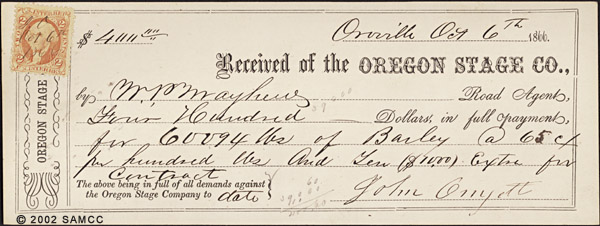 $ 400 00/00
Oroville Oct 6th 1866.
Received of the OREGON STAGE CO.,
by W. P. Mayhew Road Agent,
Four Hundred Dollars, in full payment,
for 60094 lbs of Barley @ 65 c/
per hundred lbs And Ten ($10.00) Extra for
Contract
The above being in full of all demands against
the Oregon Stage Company to date
John
OREGON STAGE
© 2002 SAMCC